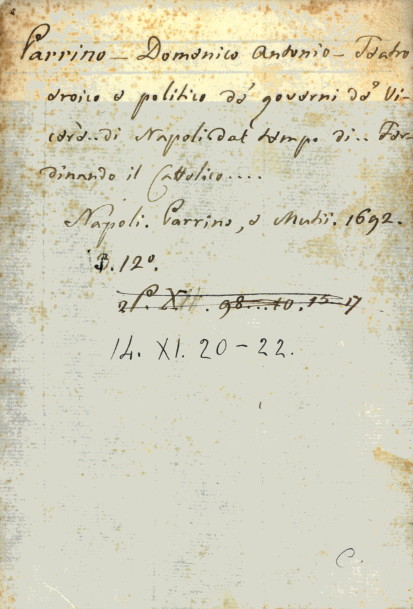 Parrino – Domenico Antonio – Teatro
eroico e politico de' governi de' Vi-
cerè.. di Napoli dal tempo di.. Fer-
dinando il Cattolico....
Napoli. Parrino, e Mutii. 1692.
3. 12°.
98...10. 15 17
14. XI. 20–22.
C.